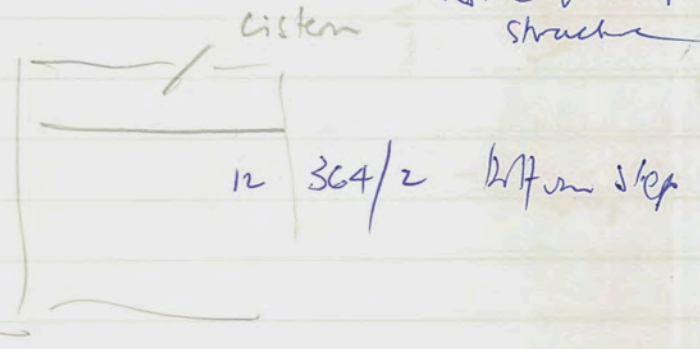 cistern
structure
12 364/2 bottom step